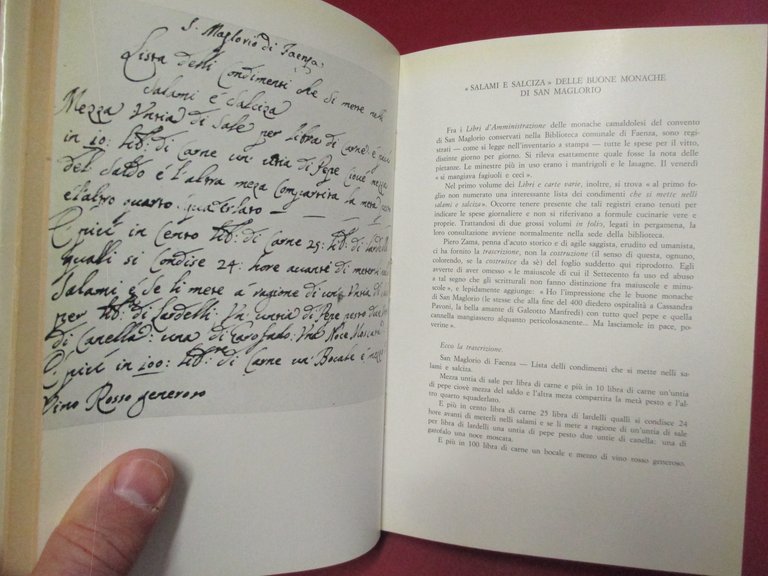 S. Maglorio di Faenza
Lista delli Condimenti che si mette nelli
Salami è Salciza
Mezza Untia di Sale per libra di Carne è più
in 10: lib: di Carne un' untia di Pepe cioè mezza
del Saldo è l'altra meza Compartita la metà pesto
è l'altro quarto quadrelato
E più in Cento lib: di Carne 25: lib: di lardelli
qualli si Condise 24: hore avanti di meterli
Salami è Se li mete à ragione di un'a Untia di
per lib: di lardelli Un' untia di Pepe pesto due
di Canella: una di Garofalo: Una Noce Moscata
E più in 100: lib: di Carne un' Bocale è mezzo
Vino Rosso generoso
« SALAMI E SALCIZA » DELLE BUONE MONACHE
DI SAN MAGLORIO
Fra i Libri d'Amministrazione delle monache camaldolesi del convento
di San Maglorio conservati nella Biblioteca comunale di Faenza, sono regi-
strati — come si legge nell'inventario a stampa — tutte le spese per il vitto,
distinte giorno per giorno. Si rileva esattamente quale fosse la nota delle
pietanze. Le minestre più in uso erano i matrigoli e le lasagne. Il venerdì
« si mangiava fagiuoli e ceci ».
Nel primo volume dei Libri e carte varie, inoltre, si trova « al primo
foglio non numerato una interessante lista dei condimenti che si mette nelli
salami e salciza». Occorre tenere presente che tali registri erano tenuti per
indicare le spese giornaliere e non si riferivano a formule cucinarie vere e
proprie. Trattandosi di due grossi volumi in folio, legati in pergamena, la
loro consultazione avviene normalmente nella sede della biblioteca.
Piero Zama, penna d'acuto storico e di agile saggista, erudito ed umanista,
ci ha fornito la trascrizione, non la costruzione (il senso di questa, ognuno,
colorendo, se la costruisce da sè) del foglio suddetto qui riprodotto. Egli
avverte di aver omesso « le maiuscole di cui il Settecento fa uso ed abuso
a tal segno che gli scritturali non fanno distinzione fra maiuscole e minu-
scole », e lepidamente aggiunge: « Ho l'impressione che le buone monache
di San Maglorio (le stesse che alla fine del 400 diedero ospitalità a Cassandra
Pavoni, la bella amante di Galeotto Manfredi) con tutto quel pepe e quella
cannella mangiassero alquanto pericolosamente... Ma lasciamole in pace, po-
verine ».
Ecco la trascrizione.
San Maglorio di Faenza — Lista delli condimenti che si mette nelli sa-
lami e salciza.
Mezza untia di sale per libra di carne e più in 10 libra di carne un'untia
di pepe cioè meza del saldo e l'altra meza compartita la metà pesto e l'al-
tro quarto squaderlato.
E più in cento libra di carne 25 libra di lardelli qualli si condise 24
hore avanti di meterli nelli salami e se li metr a ragione di un'untia di sale
per libra di lardelli una untia di pepe pesto due untie di canella: una di
garofalo una noce moscata.
E più in 100 libra di carne un bocale e mezzo di vino rosso generoso.